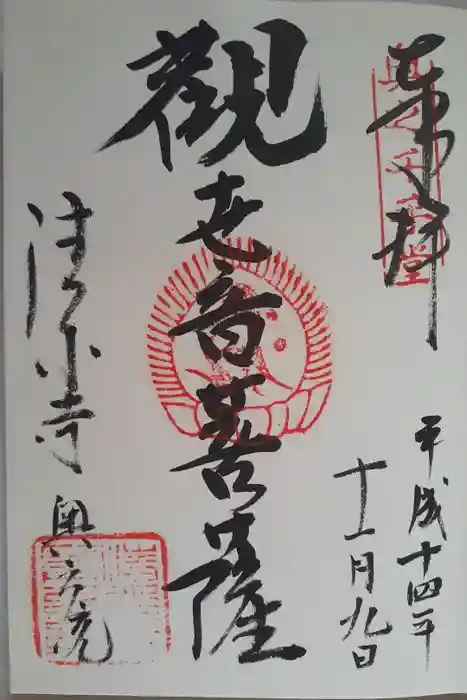 奉拝
平成十四年
十一月九日
觀世音菩薩
清水寺
奥之院